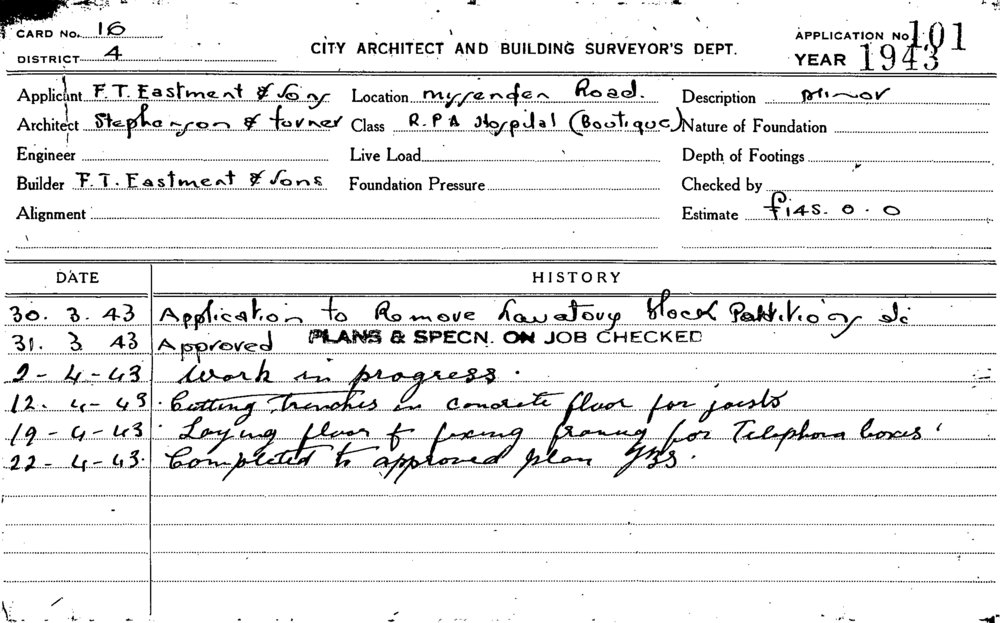 CARD No. 16
DISTRICT 4
CITY ARCHITECT AND BUILDING SURVEYOR'S DEPT.
APPLICATION No 101
YEAR 1943
Applicant F.T. Eastment & Sons Location Missenden Road. Description Minor
Architect Stephenson & Turner Class R.P.A Hospital (Boutique) Nature of Foundation
Engineer Live Load Depth of Footings
Builder F.T. Eastment & Sons Foundation Pressure Checked by
Alignment Estimate £145.0.0
DATE HISTORY
30. 3. 43 Application to Remove Lavatory block Partitions
31. 3 43 Approved PLANS & SPECN. ON JOB CHECKED
2-4-43 Work in progress.
12. 4-43. Cutting trenches in concrete floor for joists
19-4-43. Laying floor & fixing framing for Telephone boxes
22-4-43. Completed to approved plan